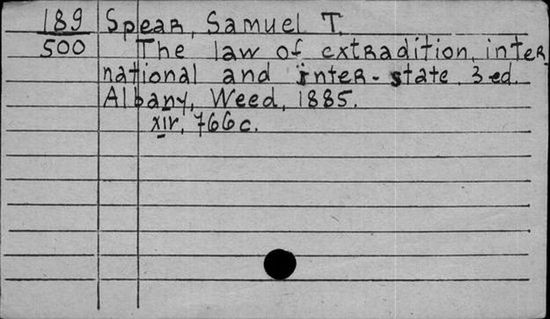 189 Spear, Samuel T.
500 The law of extradition, inter
national and inter-state. 3 ed.
Albany, Weed, 1885.
xiv, 766 c.